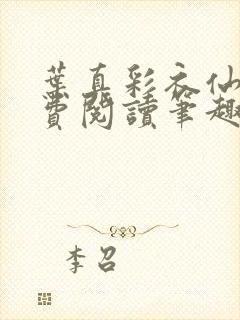 葉真彩衣仙
費閱讀筆趣
李召